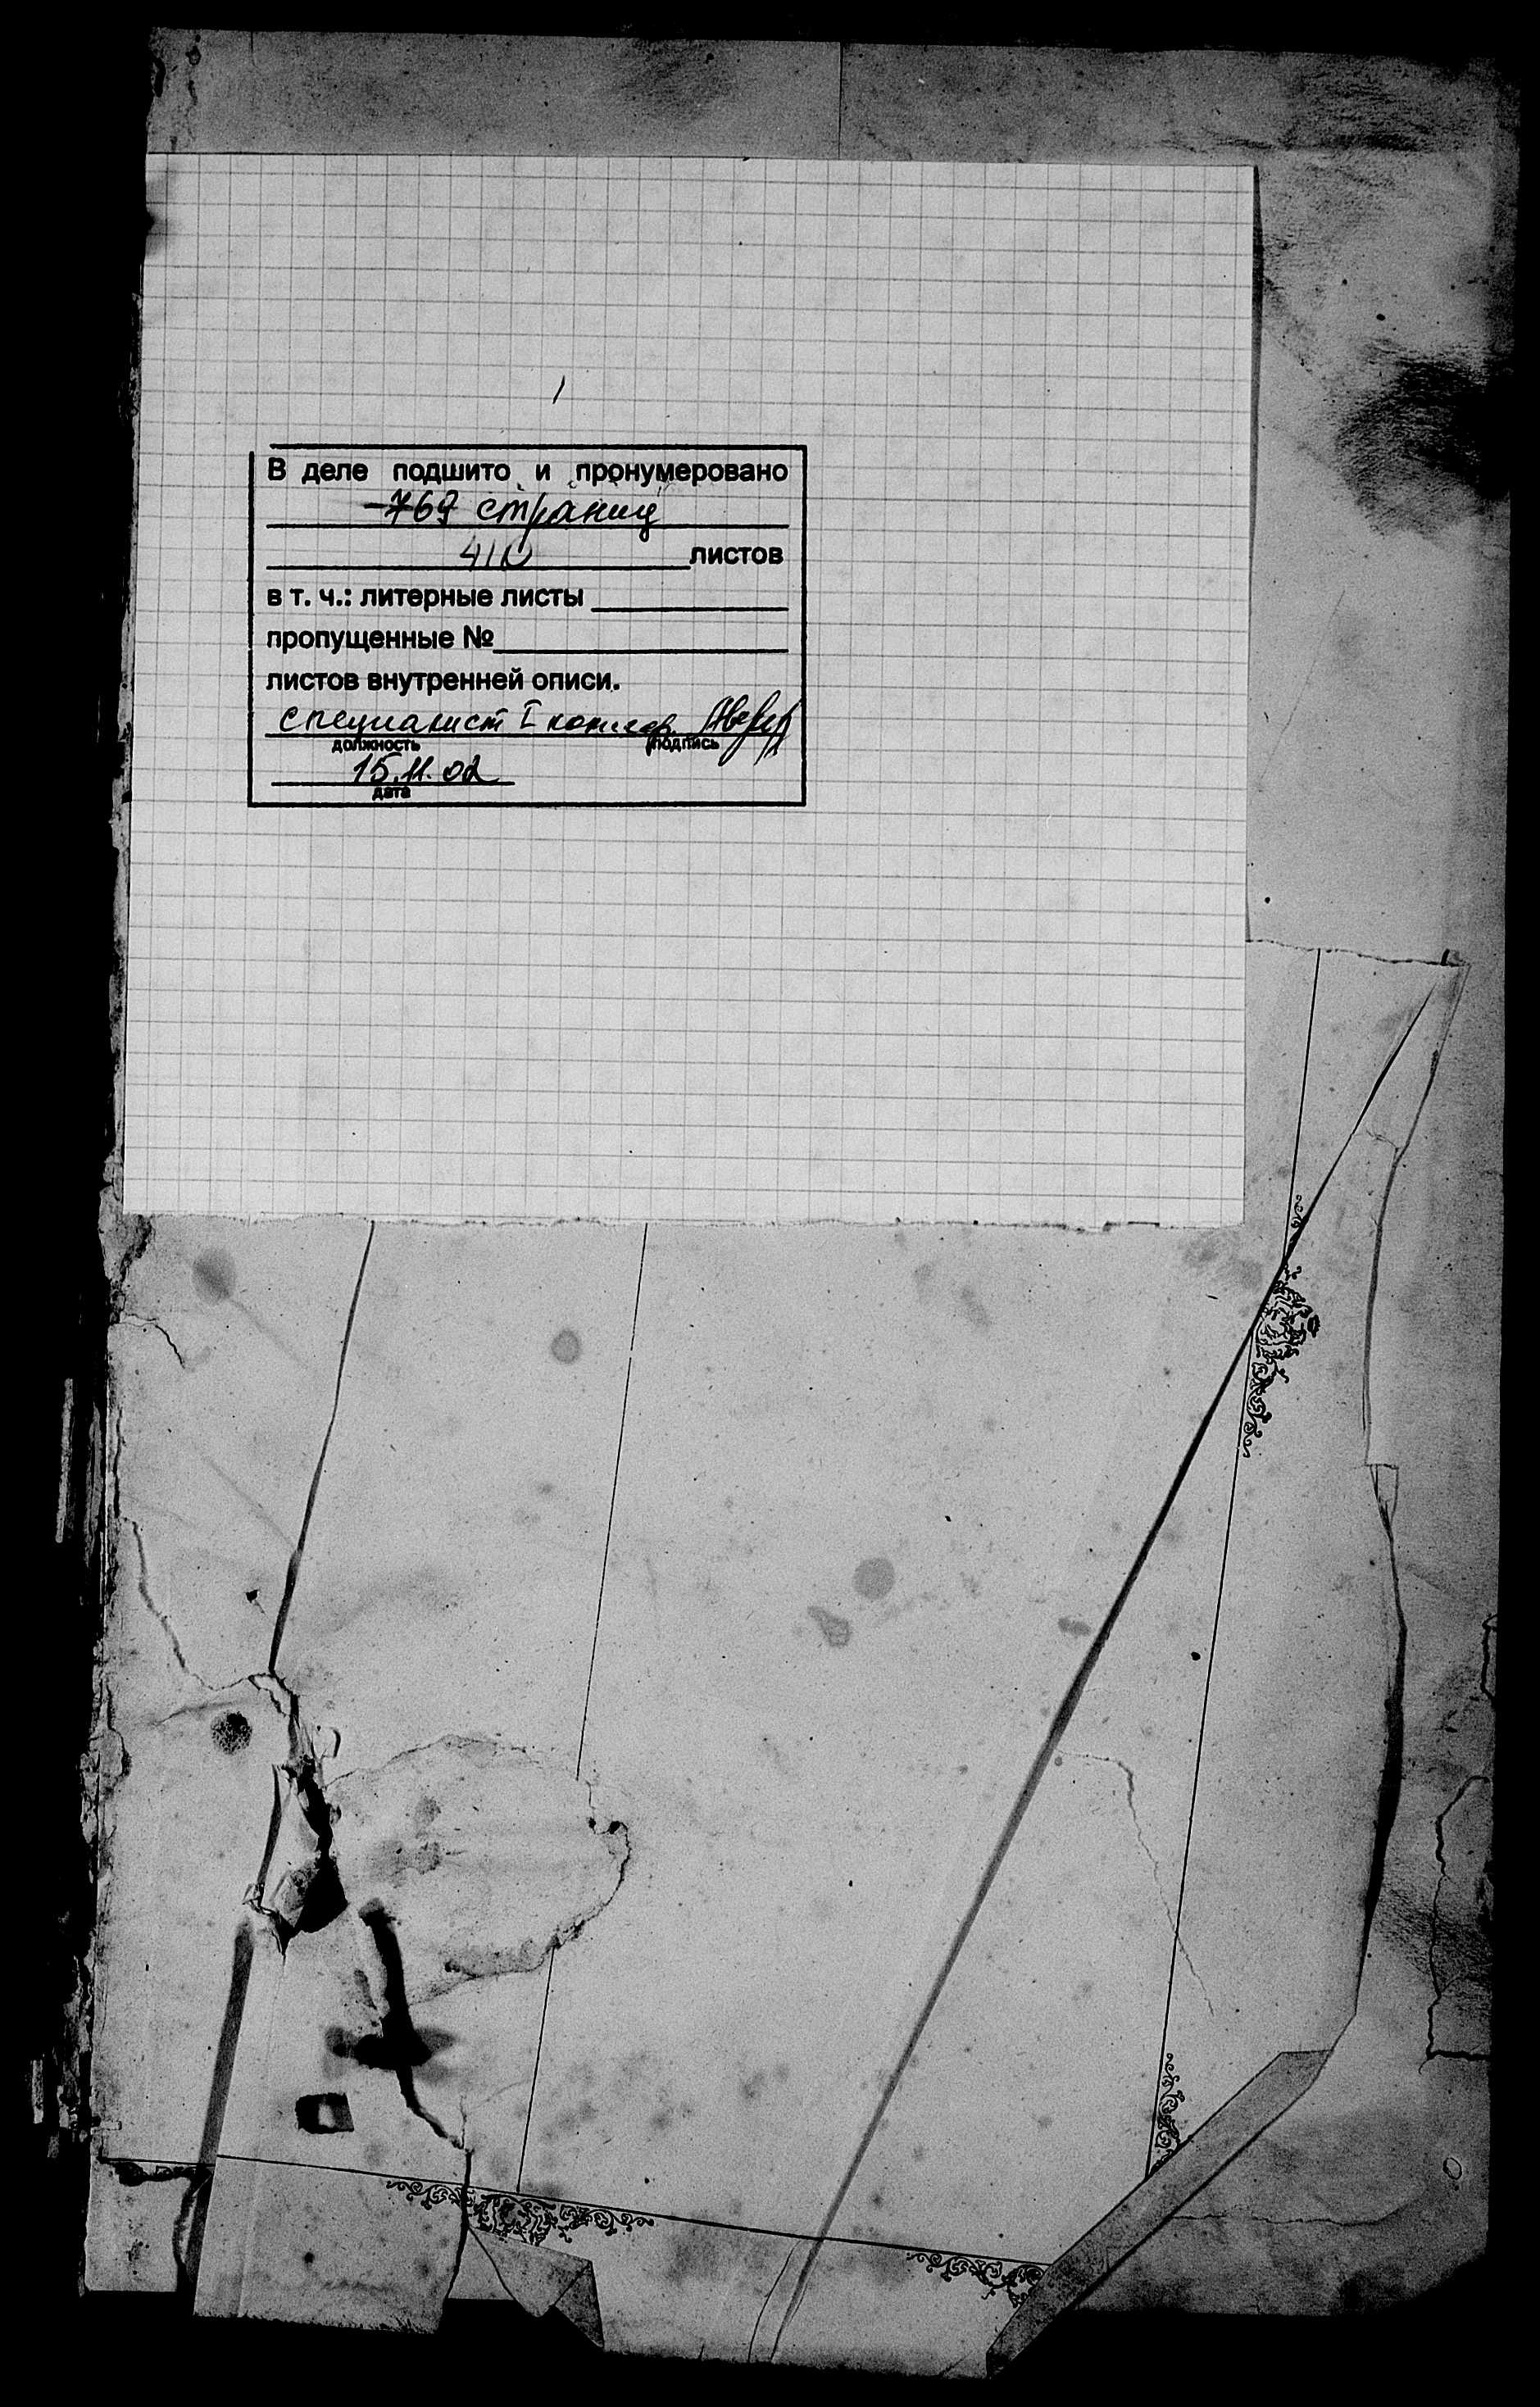 В деле подшито и пронумеровано
769 страниц
410 листов
в т. ч.: литерные листы
пропущенные №
листов внутренней описи.
специалист I категор.
должность подпись
15.11.02
дата